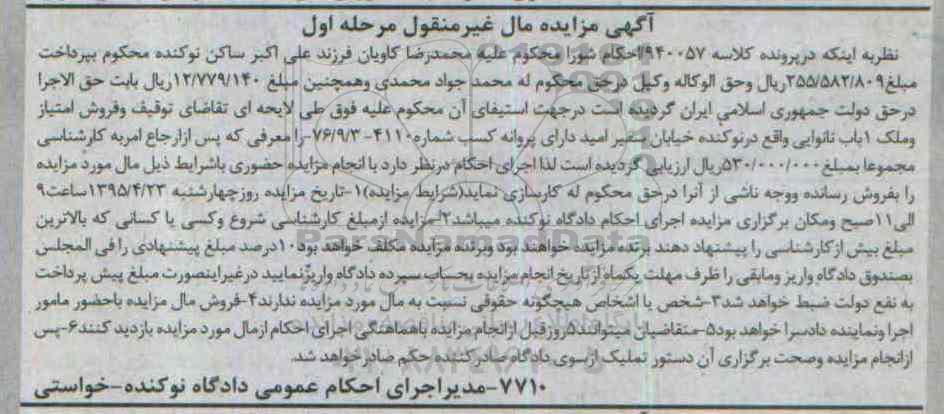 آگهی مزایده مال غیرمنقول مرحله اول
نظربه اینکه درپرونده کلاسه ۹۴۰۰۵۷احکام شورا محکوم علیه محمدرضا کاویان فرزند علی اکبر ساکن نوکنده محکوم بپرداخت
مبلغ۲۵۵/۵۸۲/۸۰۹ریال وحق الوکاله وکیل درحق محکوم له محمد جواد محمدی وهمچنین مبلغ ۱۲/۷۷۹/۱۴۰ریال بابت حق الاجرا
درحق دولت جمهوری اسلامی ایران گردیده است درجهت استیفای آن محکوم علیه فوق طی لایحه ای تقاضای توقیف وفروش امتیاز
وملک ۱باب نانوایی واقع درنوکنده خیابان امید دارای پروانه کسب شماره۴۱۱۰-۷۶/۹/۳-را معرفی که پس ازارجاع امربه کارشناسی
مجموعا بمبلغ ۵۳۰/۰۰۰/۰۰۰ریال ارزیابی گردیده است لذا اجرای احکام درنظر دارد با انجام مزایده حضوری باشرایط ذیل مال مورد مزایده
را بفروش رسانده ووجه ناشی از آنرا درحق محکوم له کارسازی نماید(شرایط مزایده)۱-تاریخ مزایده روزچهارشنبه ۱۳۹۵/۴/۲۳ساعت۹
الی۱۱صبح ومکان برگزاری مزایده اجرای احکام دادگاه نوکنده میباشد۲-مزایده ازمبلغ کارشناسی شروع وکسی یا کسانی که بالاترین
مبلغ بیش ازکارشناسی را پیشنهاد دهند برنده مزایده خواهند بود وبرنده مزایده مکلف خواهد بود۱۰درصد مبلغ پیشنهادی را فی المجلس
بصندوق دادگاه واریز ومابقی را ظرف مهلت یکماه ازتاریخ انجام مزایده بحساب سپرده دادگاه واریزنمایید درغیراینصورت مبلغ پیش پرداخت
به نفع دولت ضبط خواهد شد۳-شخص یا اشخاص هیچگونه حقوقی نسبت به مال مورد مزایده ندارند۴-فروش مال مزایده باحضور مامور
اجرا ونماینده دادسرا خواهد بود۵-متقاضیان میتوانند۵روزقبل ازانجام مزایده باهماهنگی اجرای احکام ازمال مورد مزایده بازدید کنند۶-پس
ازانجام مزایده وصحت برگزاری آن دستور تملیک ازسوی دادگاه صادرکننده حکم صادرخواهد شد.
۷۷۱۰-مدیراجرای احکام عمومی دادگاه نوکنده-خواستی
ParsNamadData